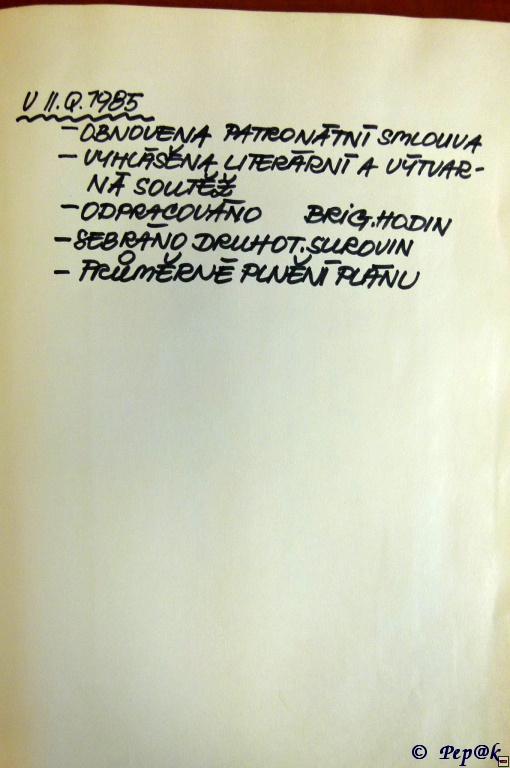 V II.Q.1985
- OBNOVENA PATRONÁTNÍ SMLOUVA
- VYHLÁŠENA LITERÁRNÍ A VÝTVAR-
NÁ SOUTĚŽ
- ODPRACOVÁNO BRIG.HODIN
- SEBRÁNO DRUHOT.SUROVIN
- PRŮMĚRNÉ PLNĚNÍ PLÁNU
© Pep@k